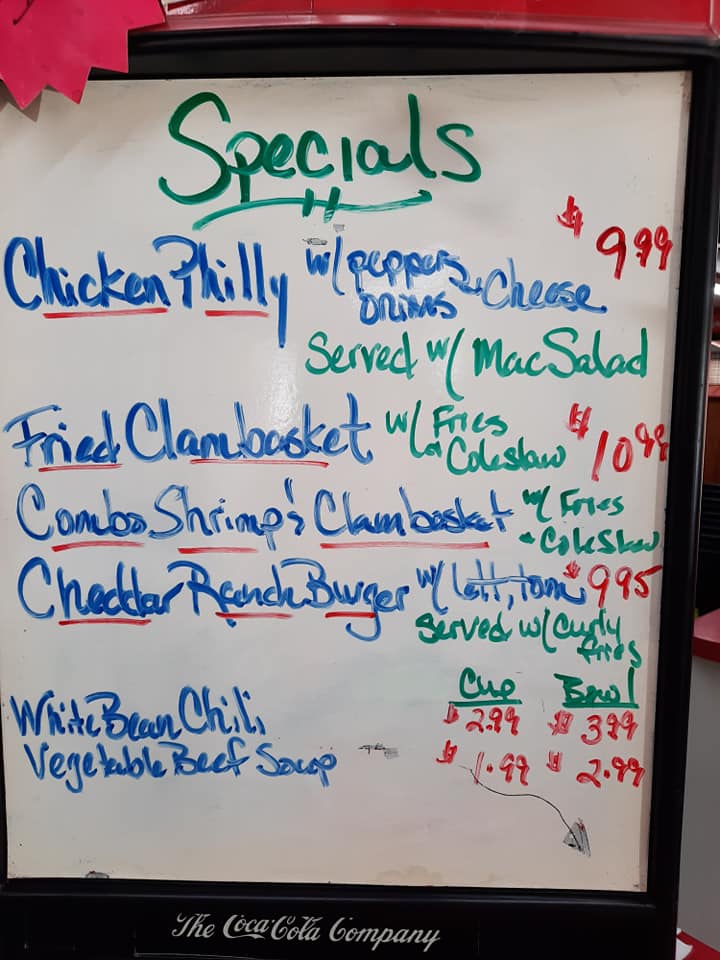 Specials
Chicken Philly w/ peppers $9.99
onions & Cheese
Served w/ Mac Salad
Fried Clambasket w/ Fries $10.99
& Coleslaw
Combo Shrimp & Clambasket w/ Fries
& ColeSlaw
Cheddar Ranch Burger w/ lett, tom $9.95
Served w/ Curly
fries
Cup Bowl
White Bean Chili $2.99 $3.99
Vegetable Beef Soup $1.99 $2.99
The Coca-Cola Company